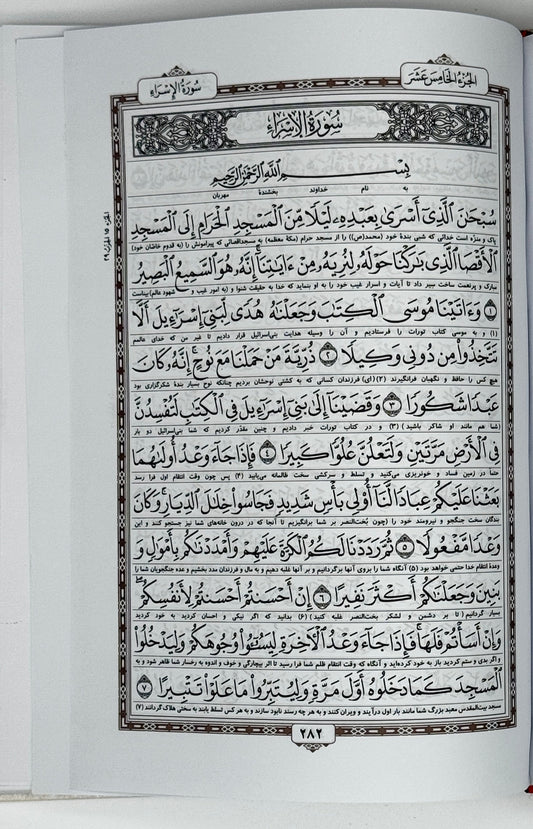 الجزء الخامس عشر
سورة الإسراء
سُورَةُ الإِسْرَاءِ
الجزء ۱۵ الحزب ۲۹
بِسْمِ اللَّهِ الرَّحْمَٰنِ الرَّحِيمِ
به نام خداوند بخشندهٔ مهربان
سُبْحَانَ الَّذِي أَسْرَىٰ بِعَبْدِهِ لَيْلًا مِنَ الْمَسْجِدِ الْحَرَامِ إِلَى الْمَسْجِدِ
پاک و منزه است خدائی که شبی بندهٔ خود (محمد(ص)) را از مسجد حرام (مکهٔ معظمه) به مسجداقصائی که پیرامونش را (به قدوم خاشان خود)
الْأَقْصَا الَّذِي بَارَكْنَا حَوْلَهُ لِنُرِيَهُ مِنْ ءَايَاتِنَا إِنَّهُ هُوَ السَّمِيعُ الْبَصِيرُ
مبارک و پرنعمت ساخت سیر داد تا آیات و اسرار غیب خود را به او بنماید که خدا به حقیقت شنوا و (به امور غیب و شهود عالم) بیناست
﴿١﴾ وَءَاتَيْنَا مُوسَى الْكِتَابَ وَجَعَلْنَاهُ هُدًى لِبَنِي إِسْرَاءِيلَ أَلَّا
(۱) و به موسی کتاب تورات را فرستادیم و آن را وسیله هدایت بنی‌اسرائیل قرار دادیم تا غیر من که خدای عالمم
تَتَّخِذُوا مِنْ دُونِي وَكِيلًا ﴿٢﴾ ذُرِّيَّةَ مَنْ حَمَلْنَا مَعَ نُوحٍ إِنَّهُ كَانَ
هیچ کس را حافظ و نگهبان فرانگیرند (۲) (ای) فرزندان کسانی که به کشتی نوحشان بردیم چنانکه نوح بسیار بندهٔ شکرگزاری بود
عَبْدًا شَكُورًا ﴿٣﴾ وَقَضَيْنَا إِلَىٰ بَنِي إِسْرَاءِيلَ فِي الْكِتَابِ لَتُفْسِدُنَّ
(شما هم مانند او شاکر باشید) (۳) و در کتاب تورات خبر دادیم و چنین مقدر کردیم که شما بنی‌اسرائیل دو بار
فِي الْأَرْضِ مَرَّتَيْنِ وَلَتَعْلُنَّ عُلُوًّا كَبِيرًا ﴿٤﴾ فَإِذَا جَاءَ وَعْدُ أُولَاهُمَا
حتما در زمین فساد و خونریزی می‌کنید و تسلط و سرکشی سخت ظالمانه می‌یابید (۴) پس چون وقت انتقام اول فرا رسد
بَعَثْنَا عَلَيْكُمْ عِبَادًا لَنَا أُولِي بَأْسٍ شَدِيدٍ فَجَاسُوا خِلَالَ الدِّيَارِ وَكَانَ
بندگان سخت جنگجو و نیرومند خود را (چون بُخت‌النصر بر شما برانگیزیم تا آنجا که در درون خانه‌های شما نیز جستجو کنند و این
وَعْدًا مَفْعُولًا ﴿٥﴾ ثُمَّ رَدَدْنَا لَكُمُ الْكَرَّةَ عَلَيْهِمْ وَأَمْدَدْنَاكُمْ بِأَمْوَالٍ وَ
وعدهٔ انتقام خدا حتمی خواهد بود (۵) آنگاه شما را بروی آنها برگردانیم و بر آنها غلبه دهیم و به مال و فرزندان مدد بخشیم و عده جنگجویان شما را
بَنِينَ وَجَعَلْنَاكُمْ أَكْثَرَ نَفِيرًا ﴿٦﴾ إِنْ أَحْسَنْتُمْ أَحْسَنْتُمْ لِأَنْفُسِكُمْ
بسیار گردانیم (تا بر دشمن و لشکر بخت‌النصر غلبه کنید) (۶) بدانید که اگر نیکی و احسان کردید به خود کردید
وَإِنْ أَسَأْتُمْ فَلَهَا فَإِذَا جَاءَ وَعْدُ الْآخِرَةِ لِيَسُوءُوا وُجُوهَكُمْ وَلِيَدْخُلُوا
و اگر بدی و ستم کردید باز به خود کرده‌اید و آنگاه که وقت انتقام ظلم شما فرا رسید تا اثر بیچارگی و خوف و اندوه به رخسار شما ظاهر شود و به
الْمَسْجِدَ كَمَا دَخَلُوهُ أَوَّلَ مَرَّةٍ وَلِيُتَبِّرُوا مَا عَلَوْا تَتْبِيرًا ﴿٧﴾
مسجد بیت‌المقدس معبد بزرگ شما مانند بار اول درآیند و ویران کنند و به هر چه رسند نابود سازند و به هر کس تسلط یابند به سختی هلاک گردانند (۷)
۲۸۲